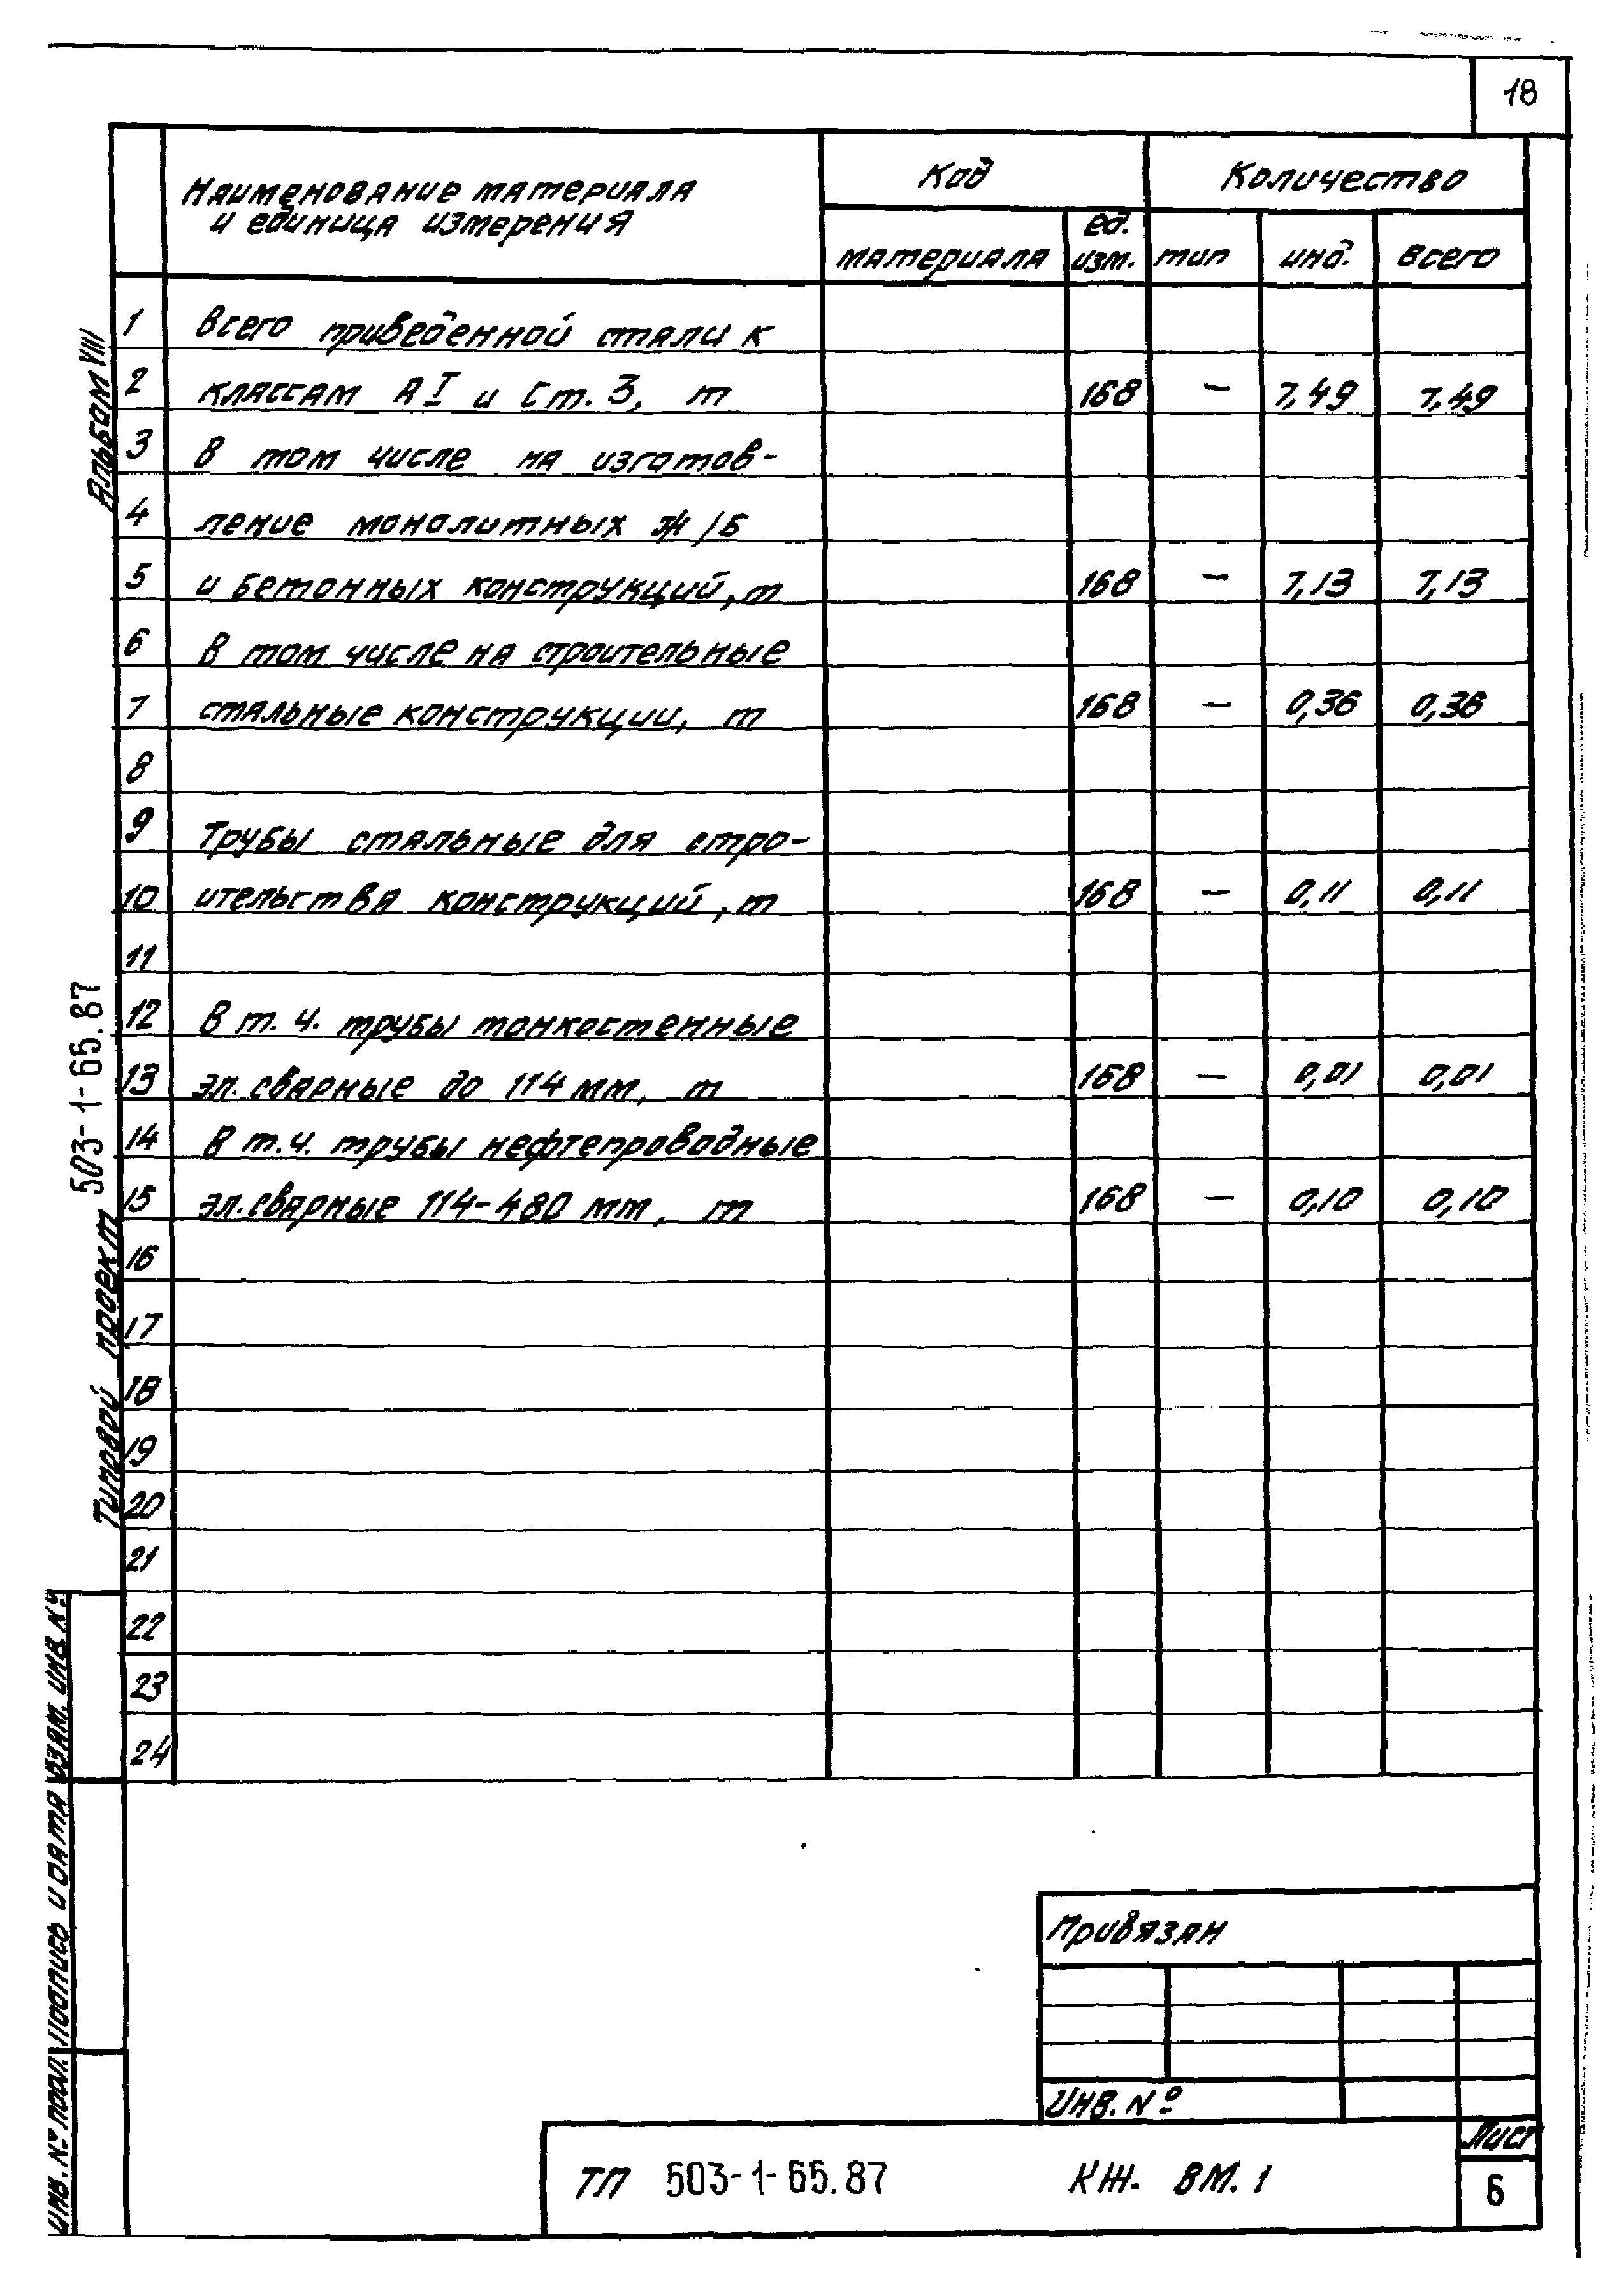 18
Наименование материала
и единица измерения
Код
Количество
материала
ед.
изм.
тип
инд.
всего
1 Всего приведенной стали к
2 классам А I и Ст. 3, т 168 — 7,49 7,49
3 В том числе на изготов-
4 ление монолитных ж/б
5 и бетонных конструкций, т 168 — 7,13 7,13
6 В том числе на строительные
7 стальные конструкции, т 168 — 0,36 0,36
8
9 Трубы стальные для стро-
10 ительства конструкций, т 168 — 0,11 0,11
11
12 В т. ч. трубы тонкостенные
13 эл. сварные до 114 мм, т 168 — 0,01 0,01
14 В т.ч. трубы нефтепроводные
15 эл. сварные 114-480 мм, т 168 — 0,10 0,10
16
17
18
19
20
21
22
23
24
Альбом VIII
Типовой проект 503-1-65.87
Взам. инв. №
Подпись и дата
Инв. № подл.
Привязан
Инв. №
ТП 503-1-65.87 КЖ. ВМ. 1
Лист
6